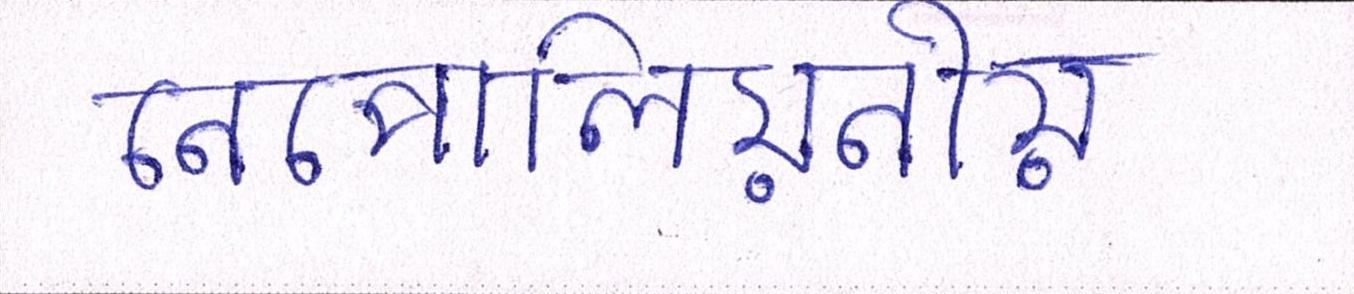 নেপোলিয়নীয়